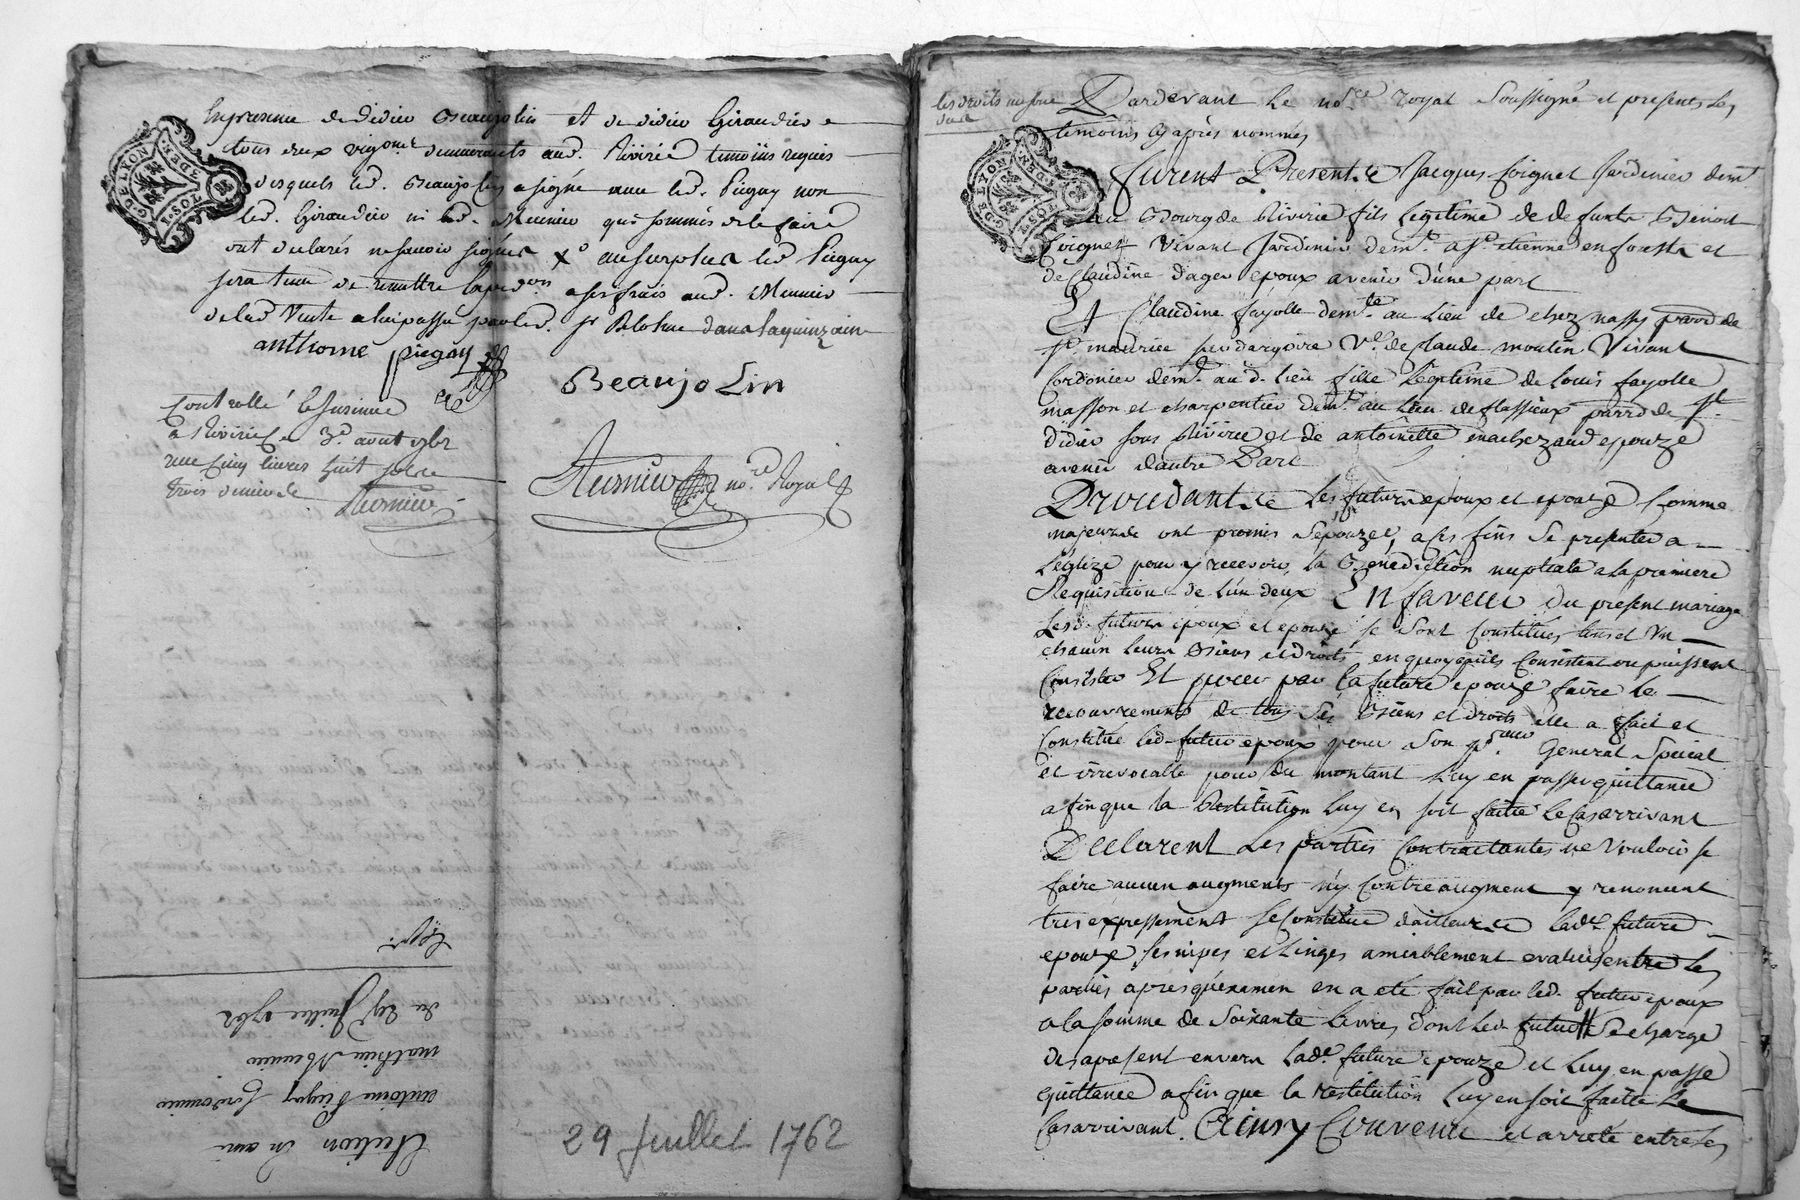 En presence de didier Beaujolin et de didier Giraudier
tous deux vigon.r demeurants aud. Riverie temoins requis
desquels led. Beaujolin a signé avec led. Piegay non
led. Giraudier ni led. Meunier que sommés de le faire
ont declarés ne savoir signer X.o au surplus led. Piegay
sera tenu de remettre a ses frais aud. Meunier
de lad vente a lui passé par led. Sr dans la quinzaine
anthoine piegay
Beaujolin
Controllé
a Riverie le 3.e aout 1762
reçu cinq livres huit sols
trois deniers
no.re Royal
G DE LYON
les droits
Pardevant le no.re royal soussigné et presents les
temoins cy apres nommés
Furent Present.s Jacques Coignet Jardinier dem.t
au Bourg de Riverie fils legitime de defunt Benoit
Coignet vivant Jardinier dem.t a S.t etienne en forest et
de Claudine dager epoux avenir d'une part
Et Claudine fayolle dem.te au lieu de chez nassy parr de
S.t maurice sur dargoire V.e de Claude moulin vivant
Cordonier dem.t au d. lieu fille legitime de Louis fayolle
masson et charpentier dem.t au lieu de flassieux parr de S.t
didier sous Riverie et de antoinette epouze
avenir d'autre Part
Procedant.s les futurs epoux et epouze comme
majeurs ont promis s'epouzer, a ces fins se presenter a
l'eglize pour y recevoir la Benediction nuptiale a la premiere
Requisition de l'un deux En faveur du present mariage
lesd. futurs epoux et epouze se sont constitués tous et un
chacun leurs Biens et droits en quoy qu'ils consistent ou puissent
consister Et pour par la future epouze faire le
recouvrement de tous ses Biens et droits elle a fait et
constitué led. futur epoux pour son p.reur General special
et irrevocable pour du montant luy en passer quittance
afin que la Restitution luy en soit faitte le cas arrivant
Declarent les parties contractantes ne vouloir se
faire aucun augment n'y contreaugment y renoncent
tres expressement se constitue d'ailleurs lad.e future
epouze ses nipes et linges amiablement evalués entre les
parties apres qu'examen en a eté fait par led. futur epoux
a la somme de soixante livres dont led. futur se charge
des apresent envers lad.e future epouze et luy en passe
quittance afin que la restitution luy en soit faitte le
cas arrivant. Ainsy Convenu et arreté entre les
antoine Piegay Cordonnier
mathieu Meunier
du 29.e Juillet 1762
29 Juillet 1762